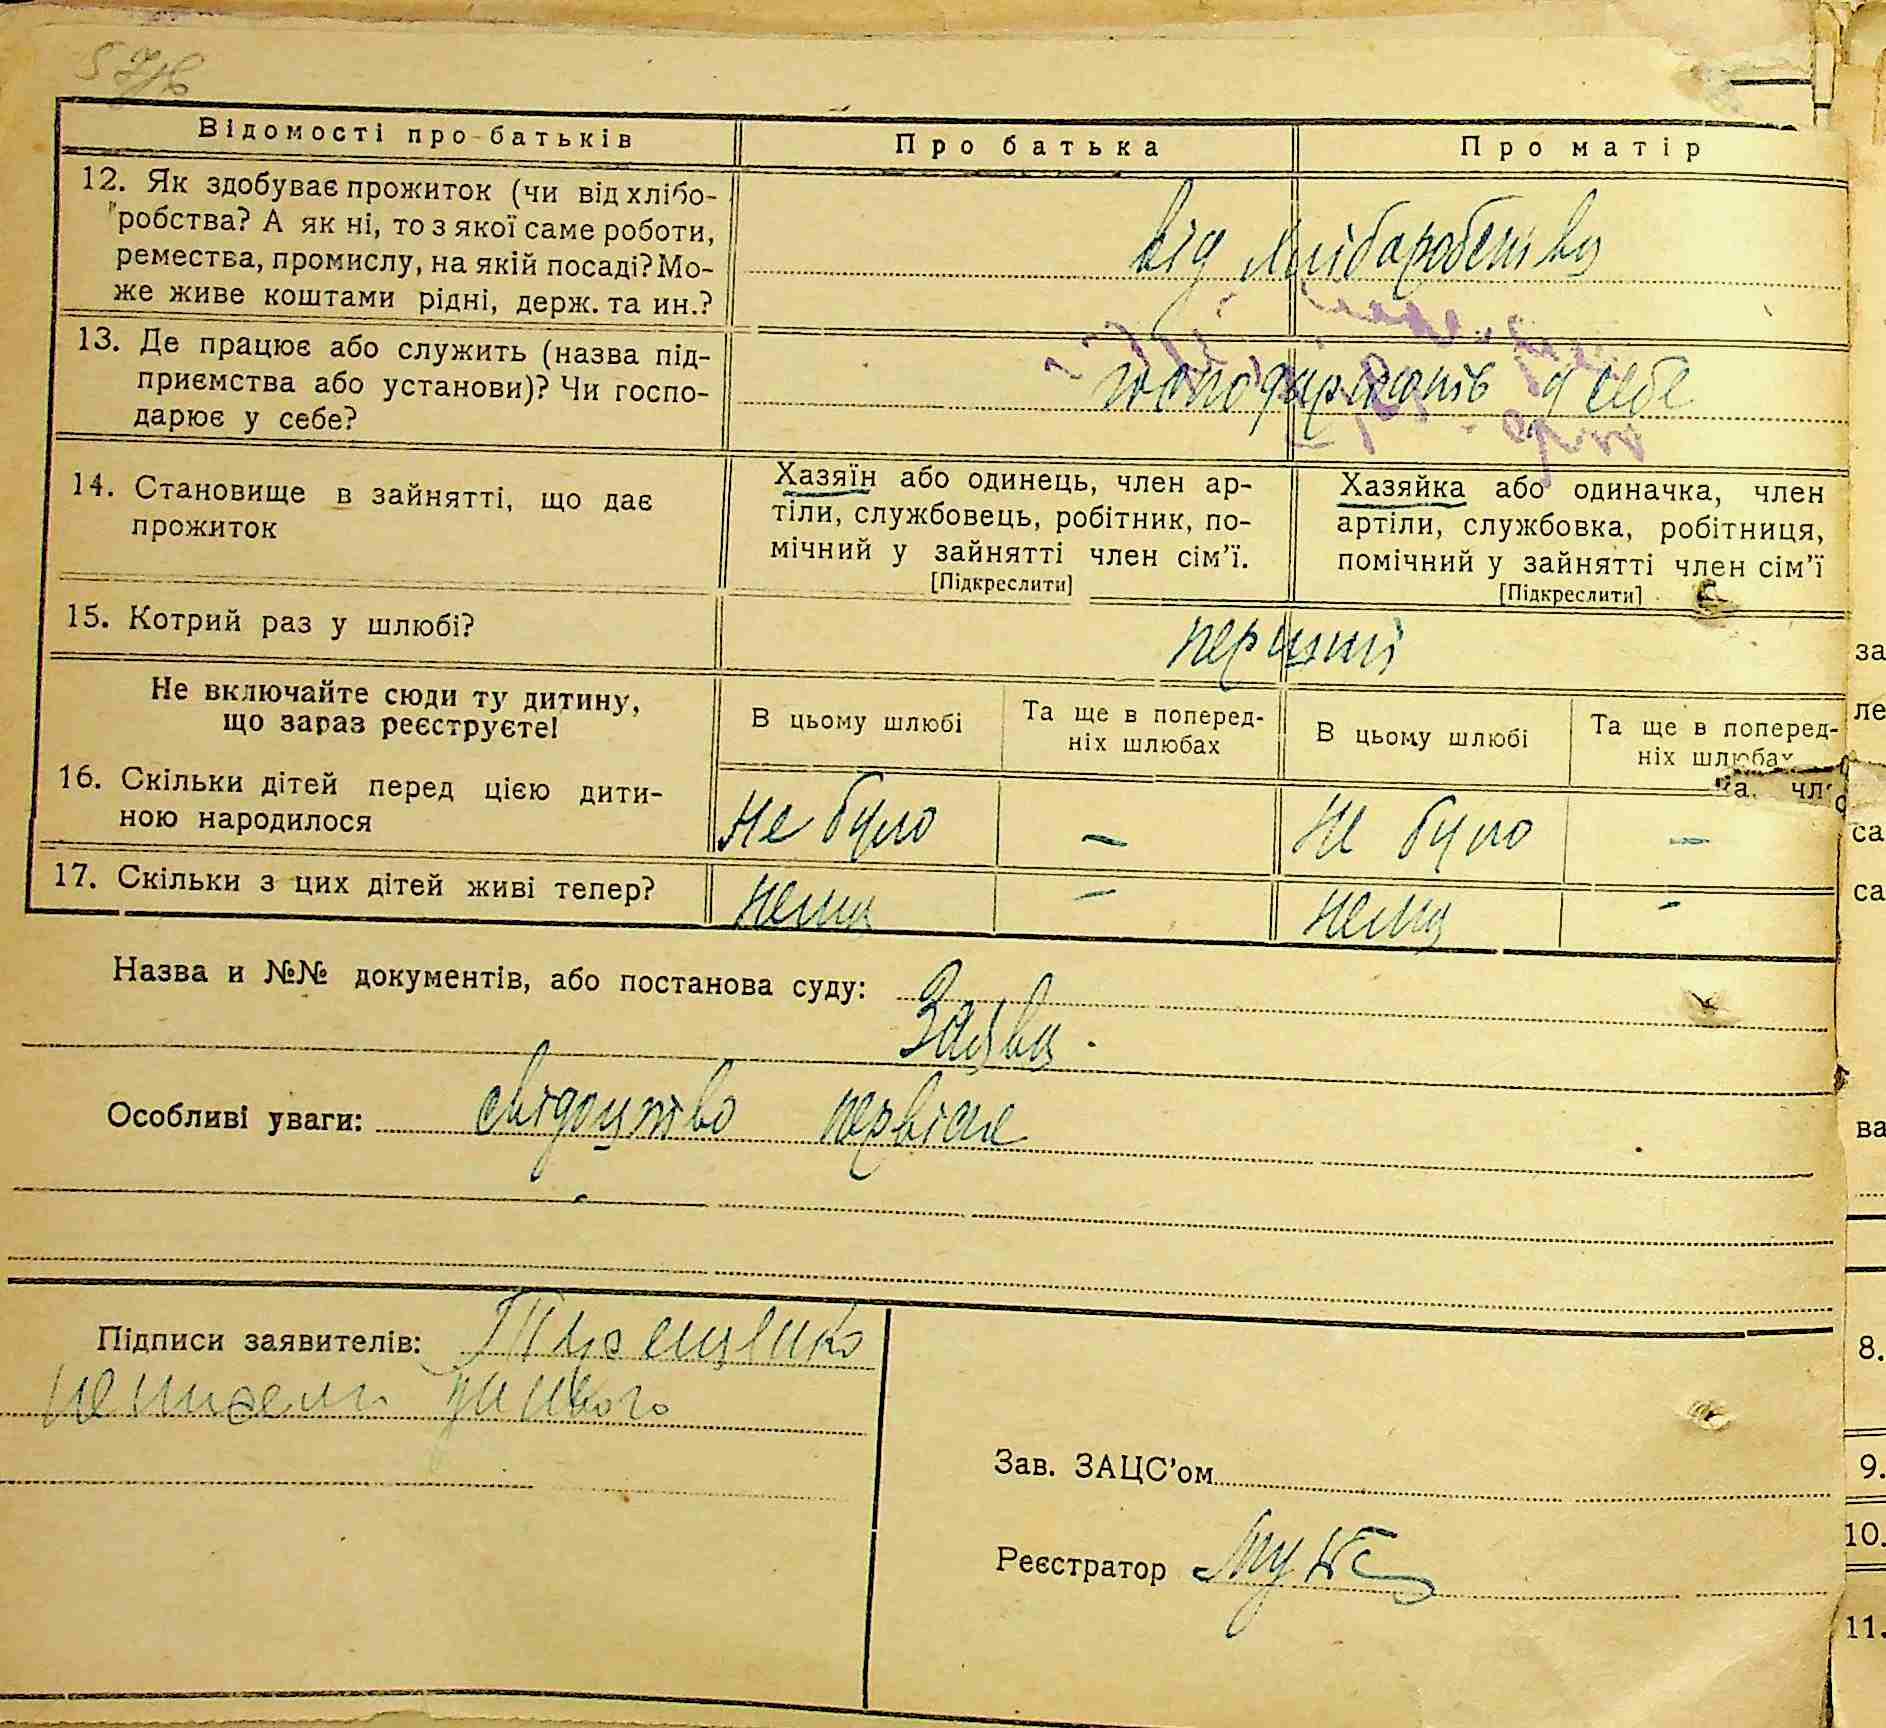 Відомості про батьків
Про батька
Про матір
12. Як здобуває прожиток (чи від хлібо-
робства? А як ні, то з якої саме роботи,
ремества, промислу, на якій посаді? Мо-
же живе коштами рідні, держ. та ин.?
від хлібаробства
13. Де працює або служить (назва під-
приємства або установи)? Чи госпо-
дарює у себе?
у себе
14. Становище в зайнятті, що дає
прожиток
Хазяїн або одинець, член ар-
тіли, службовець, робітник, по-
мічний у зайнятті член сім'ї.
[Підкреслити]
Хазяйка або одиначка, член
артіли, службовка, робітниця,
помічний у зайнятті член сім'ї
[Підкреслити]
15. Котрий раз у шлюбі?
перший
Не включайте сюди ту дитину,
що зараз реєструєте!
В цьому шлюбі
Та ще в поперед-
ніх шлюбах
В цьому шлюбі
Та ще в поперед-
ніх шлюбах
16. Скільки дітей перед цією дити-
ною народилося
Не було
—
Не було
—
17. Скільки з цих дітей живі тепер?
нема
—
нема
-
Назва и №№ документів, або постанова суду:
Заява.
Особливі уваги: свідоцтво первісне
Підписи заявителів: Терещенко
Зав. ЗАЦС'ом
Реєстратор
за
ле
са
са
ва
8.
9.
10.
11.